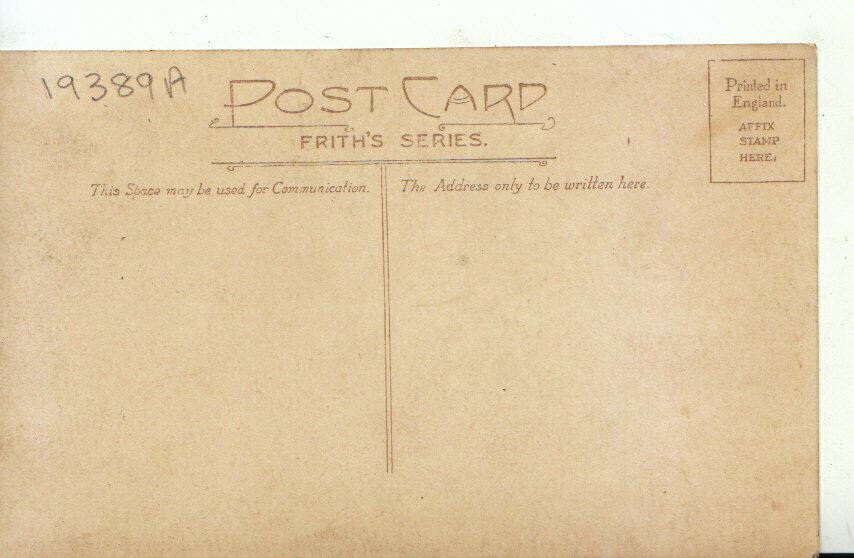 19389A
POST CARD
FRITH'S SERIES.
Printed in
England.
AFFIX
STAMP
HERE.
This Space may be used for Communication.
The Address only to be written here.